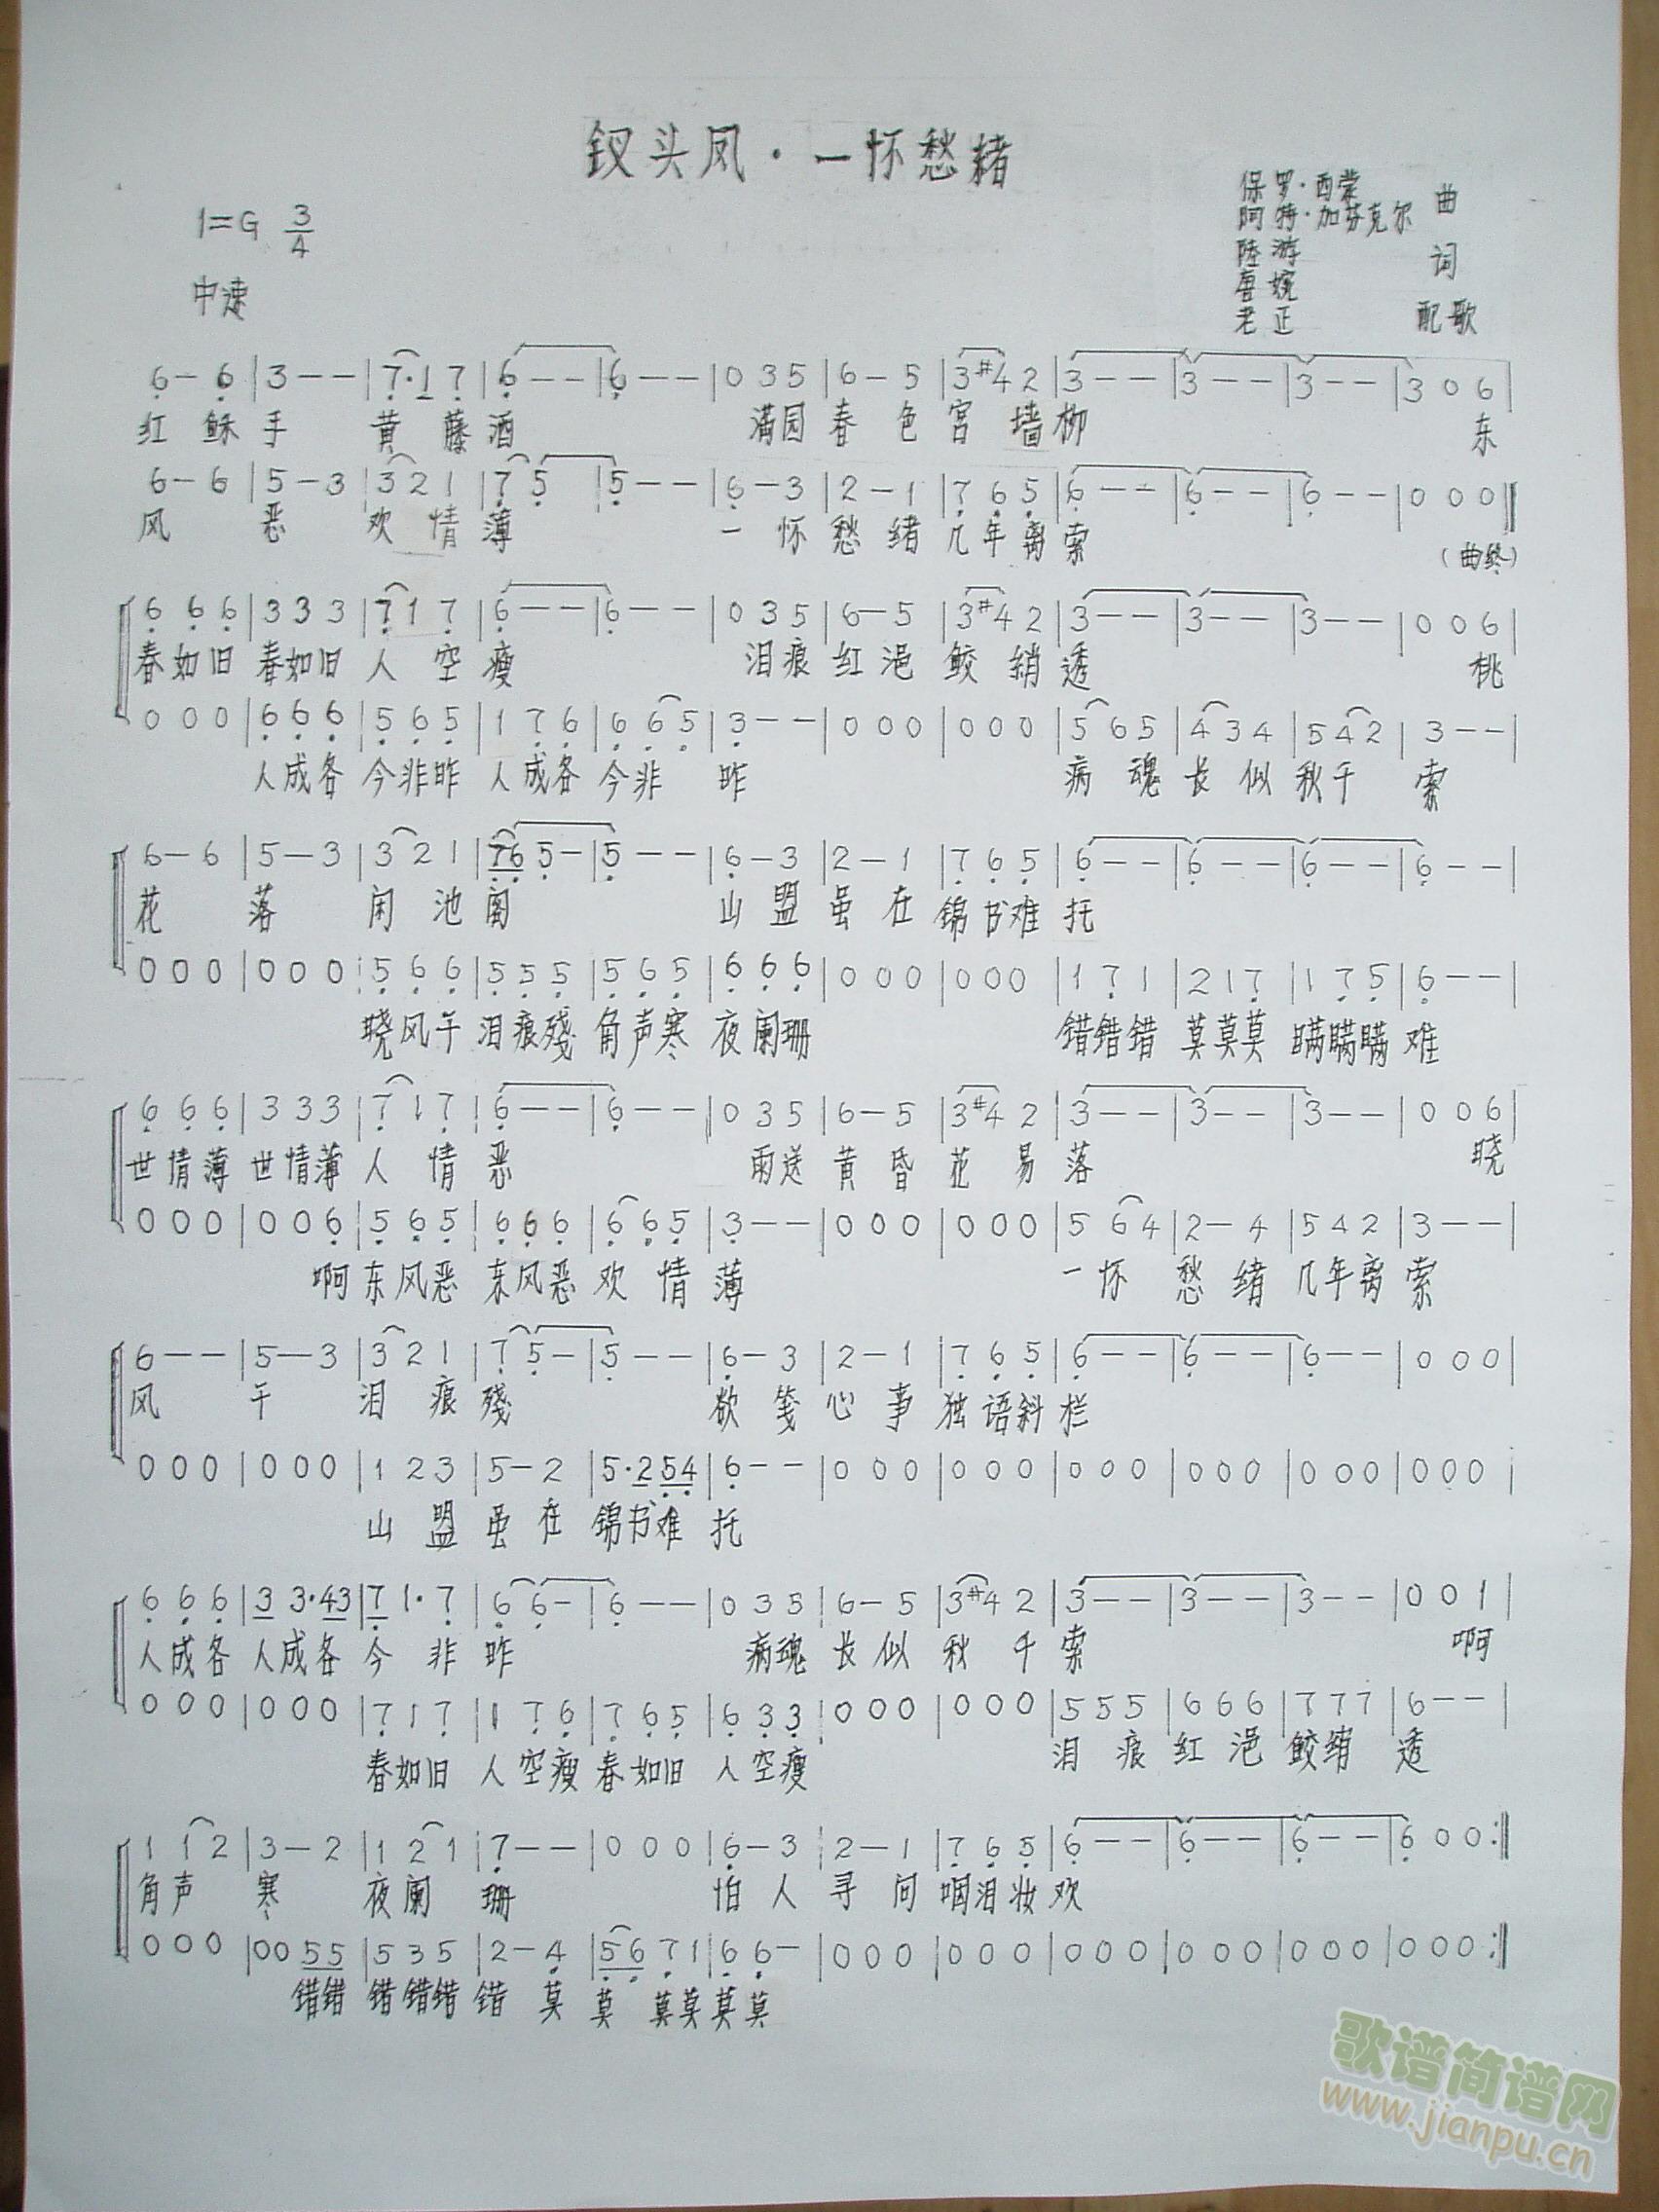 钗头凤·一怀愁绪
1=G 3/4
中速
保罗·西蒙
阿特·加芬克尔 曲
陆游
唐婉 词
老正 配歌
6 - 6 | 3 - - | 7·1 7 | 6 - - | 6 - - | 0 3 5 | 6 - 5 | 3 #4 2 | 3 - - | 3 - - | 3 - - | 3 0 6 |
红 稣 手 黄 藤 酒 满园 春 色 宫 墙 柳 东
6 - 6 | 5 - 3 | 3 2 1 | 7 5 | 5 - - | 6 - 3 | 2 - 1 | 7 6 5 | 6 - - | 6 - - | 6 - - | 0 0 0 ‖
风 恶 欢 情 薄 一 怀 愁 绪 几 年 离 索
(曲终)
6 6 6 | 3 3 3 | 7 1 7 | 6 - - | 6 - - | 0 3 5 | 6 - 5 | 3 #4 2 | 3 - - | 3 - - | 3 - - | 0 0 6 |
春如旧 春如旧 人 空 瘦 泪痕 红 浥 鲛 绡 透 桃
0 0 0 | 6 6 6 | 5 6 5 | 1 7 6 | 6 6 5 | 3 - - | 0 0 0 | 0 0 0 | 5 6 5 | 4 3 4 | 5 4 2 | 3 - - |
人成各 今非昨 人成各 今非 昨 病 魂 长 似 秋千 索
6 - 6 | 5 - 3 | 3 2 1 | 76 5 - | 5 - - | 6 - 3 | 2 - 1 | 7 6 5 | 6 - - | 6 - - | 6 - - | 6 - - |
花 落 闲 池 阁 山 盟 虽 在 锦书难 托
0 0 0 | 0 0 0 | 5 6 6 | 5 5 5 | 5 6 5 | 6 6 6 | 0 0 0 | 0 0 0 | 1 7 1 | 2 1 7 | 1 7 5 | 6 - - |
晓风干 泪痕残 角声寒 夜阑珊 错错错 莫莫莫 瞒瞒瞒 难
6 6 6 | 3 3 3 | 7 1 7 | 6 - - | 6 - - | 0 3 5 | 6 - 5 | 3 #4 2 | 3 - - | 3 - - | 3 - - | 0 0 6 |
世情薄 世情薄 人 情 恶 雨送 黄 昏 花 易 落 晓
0 0 0 | 0 0 6 | 5 6 5 | 6 6 6 | 6 6 5 | 3 - - | 0 0 0 | 0 0 0 | 5 6 4 | 2 - 4 | 5 4 2 | 3 - - |
啊 东风恶 东风恶 欢 情 薄 一 怀 愁 绪 几年离 索
6 - - | 5 - 3 | 3 2 1 | 7 5 - | 5 - - | 6 - 3 | 2 - 1 | 7 6 5 | 6 - - | 6 - - | 6 - - | 0 0 0 |
风 干 泪 痕 残 欲 笺 心 事 独 语 斜 栏
0 0 0 | 0 0 0 | 1 2 3 | 5 - 2 | 5·2 54 | 6 - - | 0 0 0 | 0 0 0 | 0 0 0 | 0 0 0 | 0 0 0 | 0 0 0 |
山 盟 虽 在 锦书难 托
6 6 6 | 3 3·43 | 7 1·7 | 6 6 - | 6 - - | 0 3 5 | 6 - 5 | 3 #4 2 | 3 - - | 3 - - | 3 - - | 0 0 1 |
人成各 人成各 今 非 昨 病魂 长 似 秋 千 索 啊
0 0 0 | 0 0 0 | 7 1 7 | 1 7 6 | 7 6 5 | 6 3 3 | 0 0 0 | 0 0 0 | 5 5 5 | 6 6 6 | 7 7 7 | 6 - - |
春如旧 人 空瘦 春如旧 人 空瘦 泪 痕 红 浥 鲛绡 透
1 1 2 | 3 - 2 | 1 2 1 | 7 - - | 0 0 0 | 6 - 3 | 2 - 1 | 7 6 5 | 6 - - | 6 - - | 6 - - | 6 0 0 :‖
角声 寒 夜阑 珊 怕 人 寻 问 咽泪妆 欢
0 0 0 | 0 0 55 | 5 3 5 | 2 - 4 | 56 7 1 | 6 6 - | 0 0 0 | 0 0 0 | 0 0 0 | 0 0 0 | 0 0 0 | 0 0 0 :‖
错错 错错错 错 莫 莫 莫莫 莫莫
歌谱简谱网
www.jianpu.cn